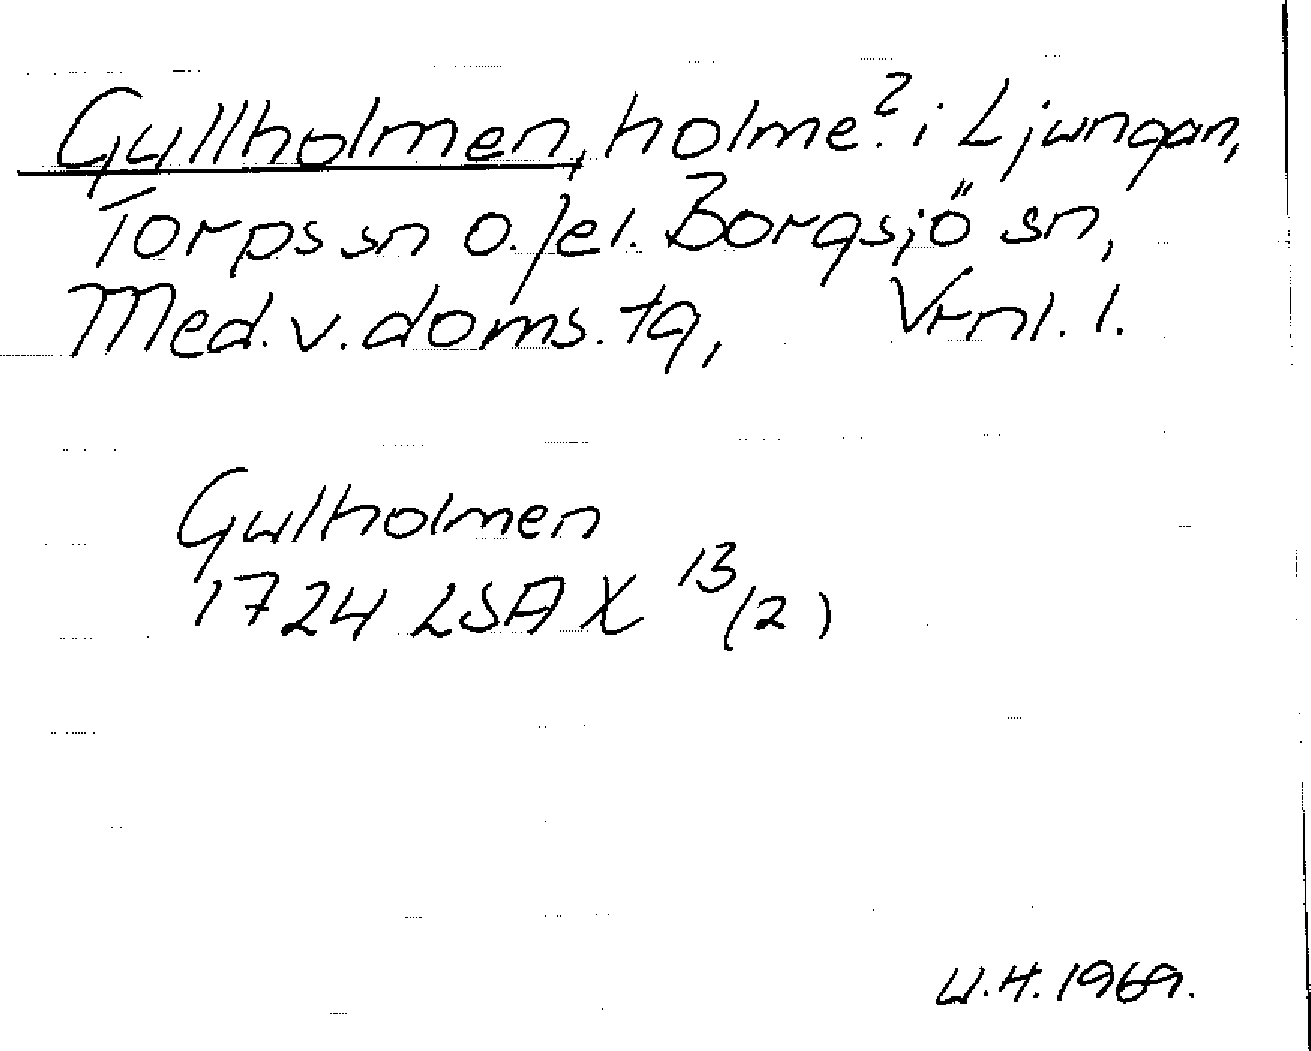 Gullholmen, holme? i Ljungan,
Torps sn o./el. Borgsjö sn,
Med. v. doms. tg, Vrnl. l.
Gulholmen
1724 LSA X 13/(2)
U.H. 1969.